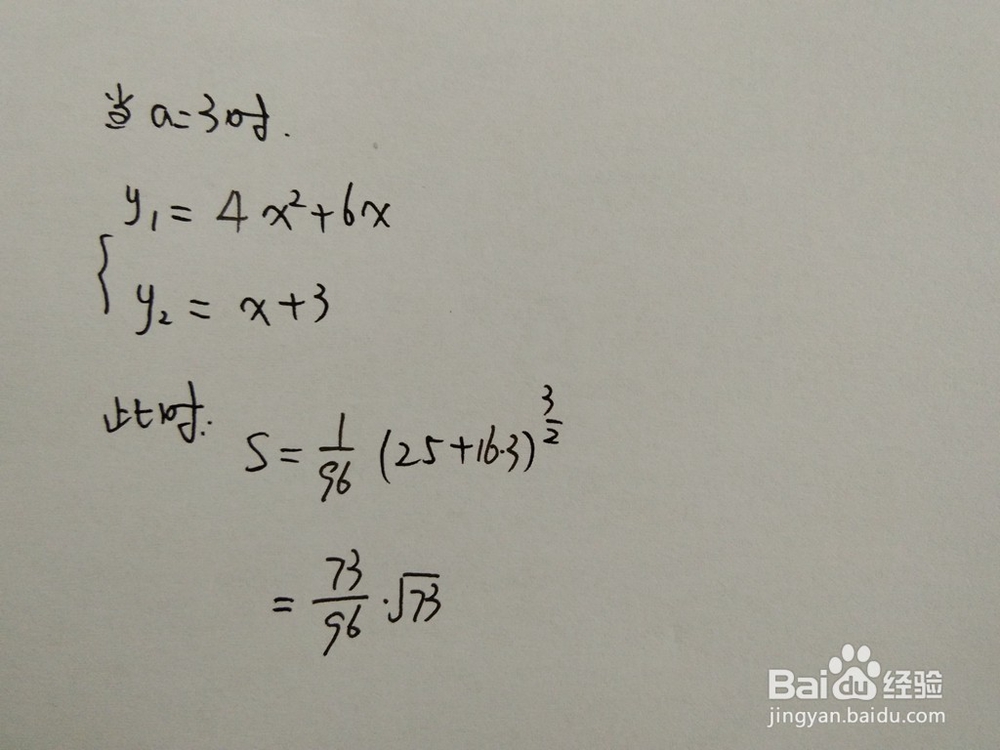 当a=3时.
y₁ = 4x²+6x
{
y₂ = x+3
此时.
S = 1/96 (25+16·3)^(3/2)
= 73/96 · √73
Baidu经验
jingyan.baidu.com